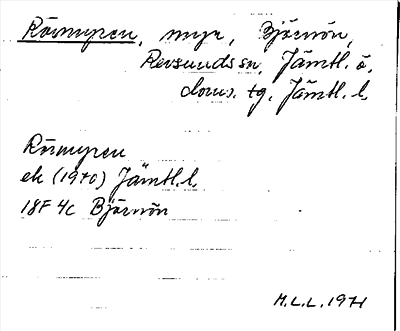 Rörmyren, myr, Björnön,
Revsunds sn, Jämtl. ö.
doms. tg, Jämtl. l.
Rörmyren
ek (1970) Jämtl. l.
18F 4c Björnön
M.L.L. 1971